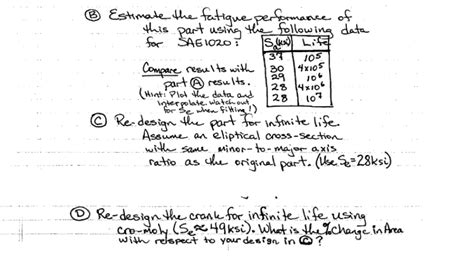 Ⓑ Estimate the fatigue performance of
this part using the following data
for SAE1020: Sa(ksi) Life
37 10⁵
30 4x10⁵
29 10⁶
28 4x10⁶
28 10⁷
Compare results with
part Ⓐ results.
(Hint: Plot the data and
interpolate. Watch out
for Se when fitting!)
Ⓒ Re-design the part for infinite life.
Assume an eliptical cross-section
with same minor-to-major axis
ratio as the original part. (Use Se=28ksi)
Ⓓ Re-design the crank for infinite life using
cro-moly (Se≈49ksi). What is the % Change in Area
with retspect to your design in Ⓒ?